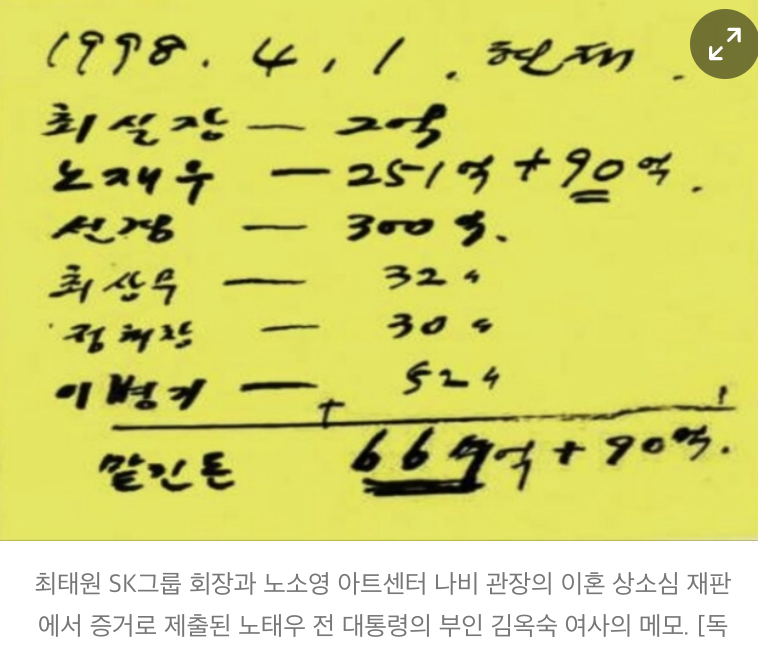 1998. 4. 1. 현재.
최실장 — 2억
노재우 — 251억 + 90억.
선경 — 300억.
최상무 — 32〃
정해창 — 30〃
이병기 — 52〃
맡긴돈 667억 + 90억.
최태원 SK그룹 회장과 노소영 아트센터 나비 관장의 이혼 상소심 재판
에서 증거로 제출된 노태우 전 대통령의 부인 김옥숙 여사의 메모. [독